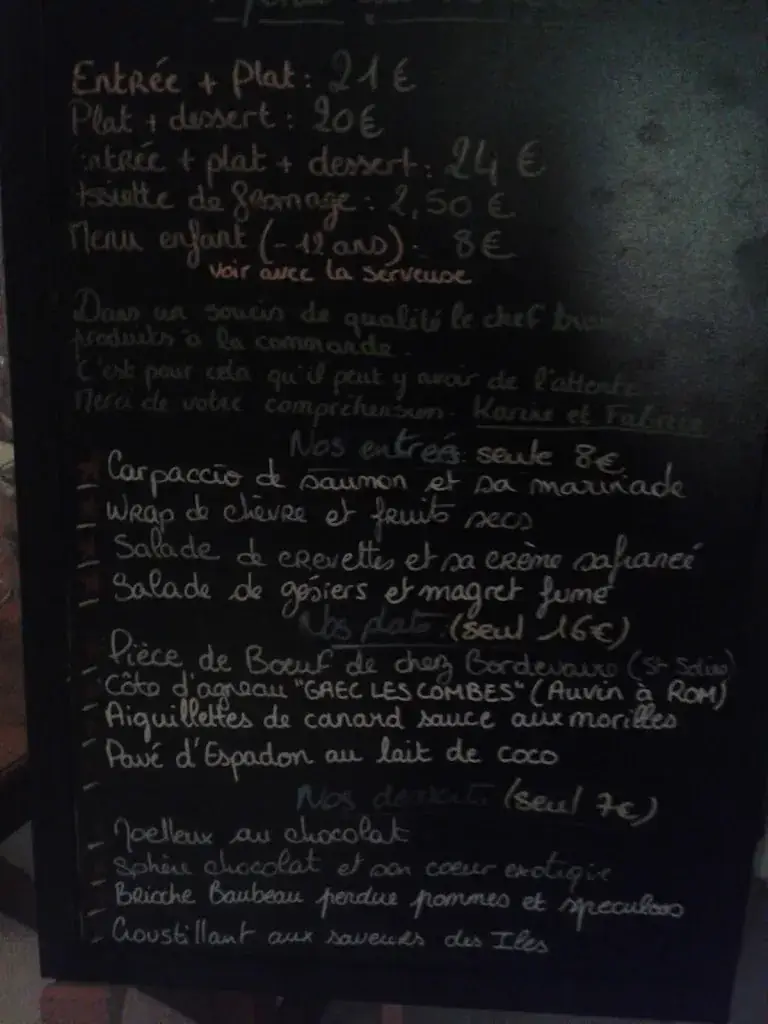 Entrée + Plat: 21 €
Plat + dessert: 20 €
Entrée + plat + dessert: 24 €
Assiette de fromage: 2,50 €
Menu enfant (- 12 ans): 8 €
voir avec la serveuse
Dans un soucis de qualité le chef
produits à la commande.
C'est pour cela qu'il peut y avoir de l'attente
Merci de votre compréhension. Karine et Fabrice
Nos entrées seule 8€
- Carpaccio de saumon et sa marinade
- Wrap de chèvre et fruits secs
- Salade de crevettes et sa crème safranée
- Salade de gésiers et magret fumé
Nos plats (seul 16€)
- Pièce de Boeuf de chez (St
- Côte d'agneau "GAEC LES COMBES" (Auvin à ROM)
- Aiguillettes de canard sauce aux morilles
- Pavé d'Espadon au lait de coco
Nos desserts (seul 7€)
- Moelleux au chocolat
- Sphère chocolat et son coeur exotique
- Brioche Baubeau perdue pommes et speculoos
- Croustillant aux saveurs des Iles